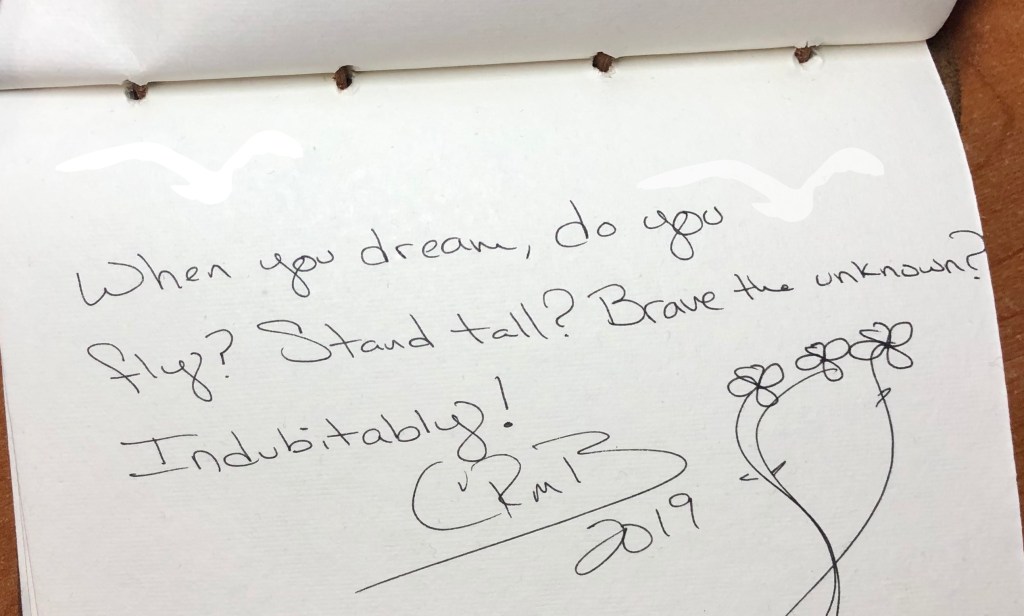 When you dream, do you
fly? Stand tall? Brave the unknown?
Indubitably!
CRMB
2019